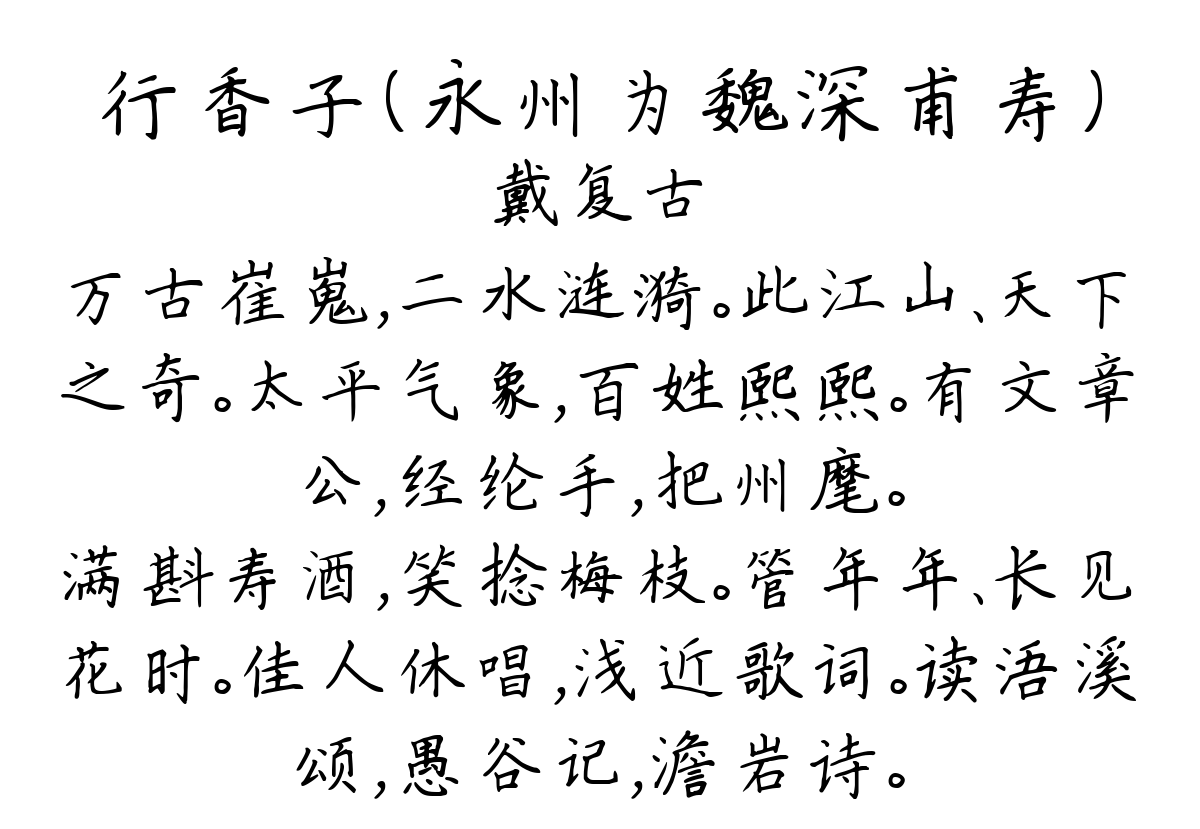 行香子(永州为魏深甫寿)
戴复古
万古崔嵬,二水涟漪。此江山、天下
之奇。太平气象,百姓熙熙。有文章
公,经纶手,把州麾。
满斟寿酒,笑捻梅枝。管年年、长见
花时。佳人休唱,浅近歌词。读浯溪
颂,愚谷记,澹岩诗。